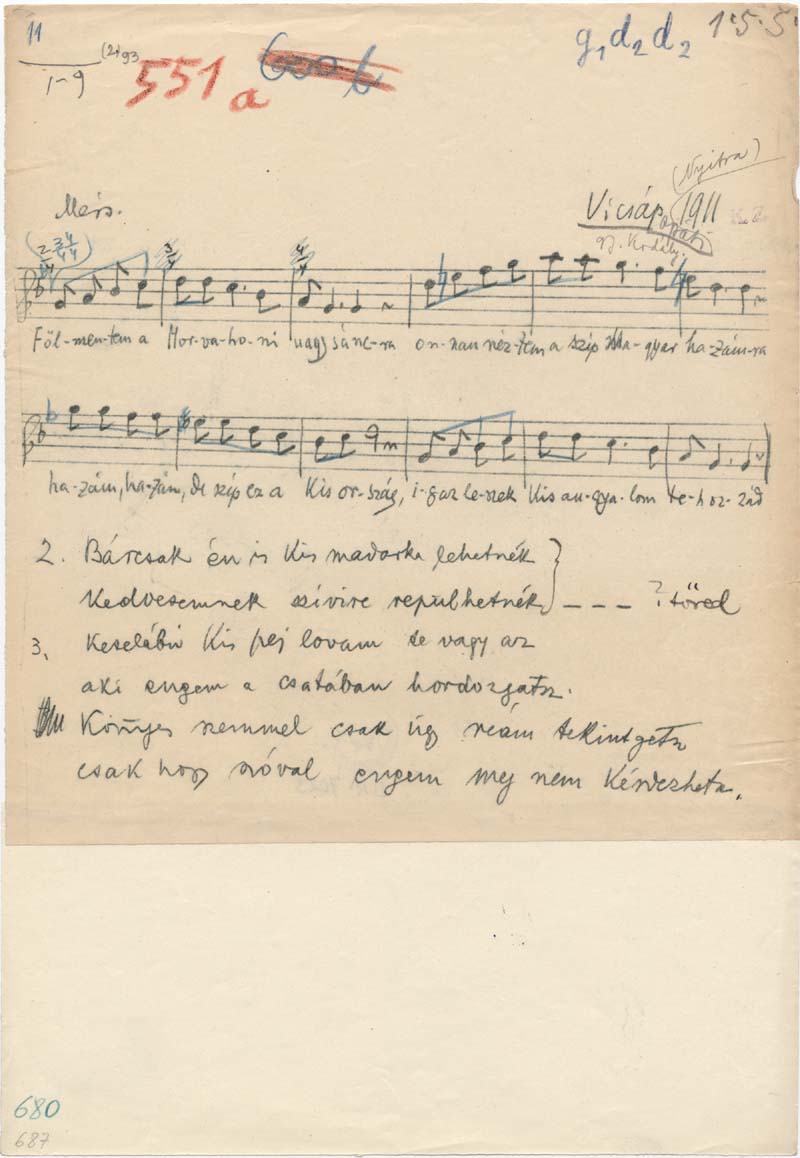 11
1-9
(2)93
551 a
g₁ d₂ d₂
1·5·5
(Nyitra)
Mérs.
Vicsáp apáti 1911 K. Z.
gy. Kodály.
Föl-men-tem a Hor-va-ho-ni nagy sánc-ra on-nan néz-tem a szép Ma-gyar ha-zám-ra
ha-zám, ha-zám, de szép ez a Kis or-szág, i-gaz le-szek Kis an-gya-lom te-hoz-zád
2. Bárcsak én is kis madárka lehetnék
Kedvesemnek szívire repülhetnék } - - - ? töred
3. Keselábú Kis pej lovam te vagy az
aki engem a csatában hordozgatsz.
Könnyes szemmel csak úgy reám tekintgetsz
csak hogy szóval engem meg nem kérdezhetsz.
680
687